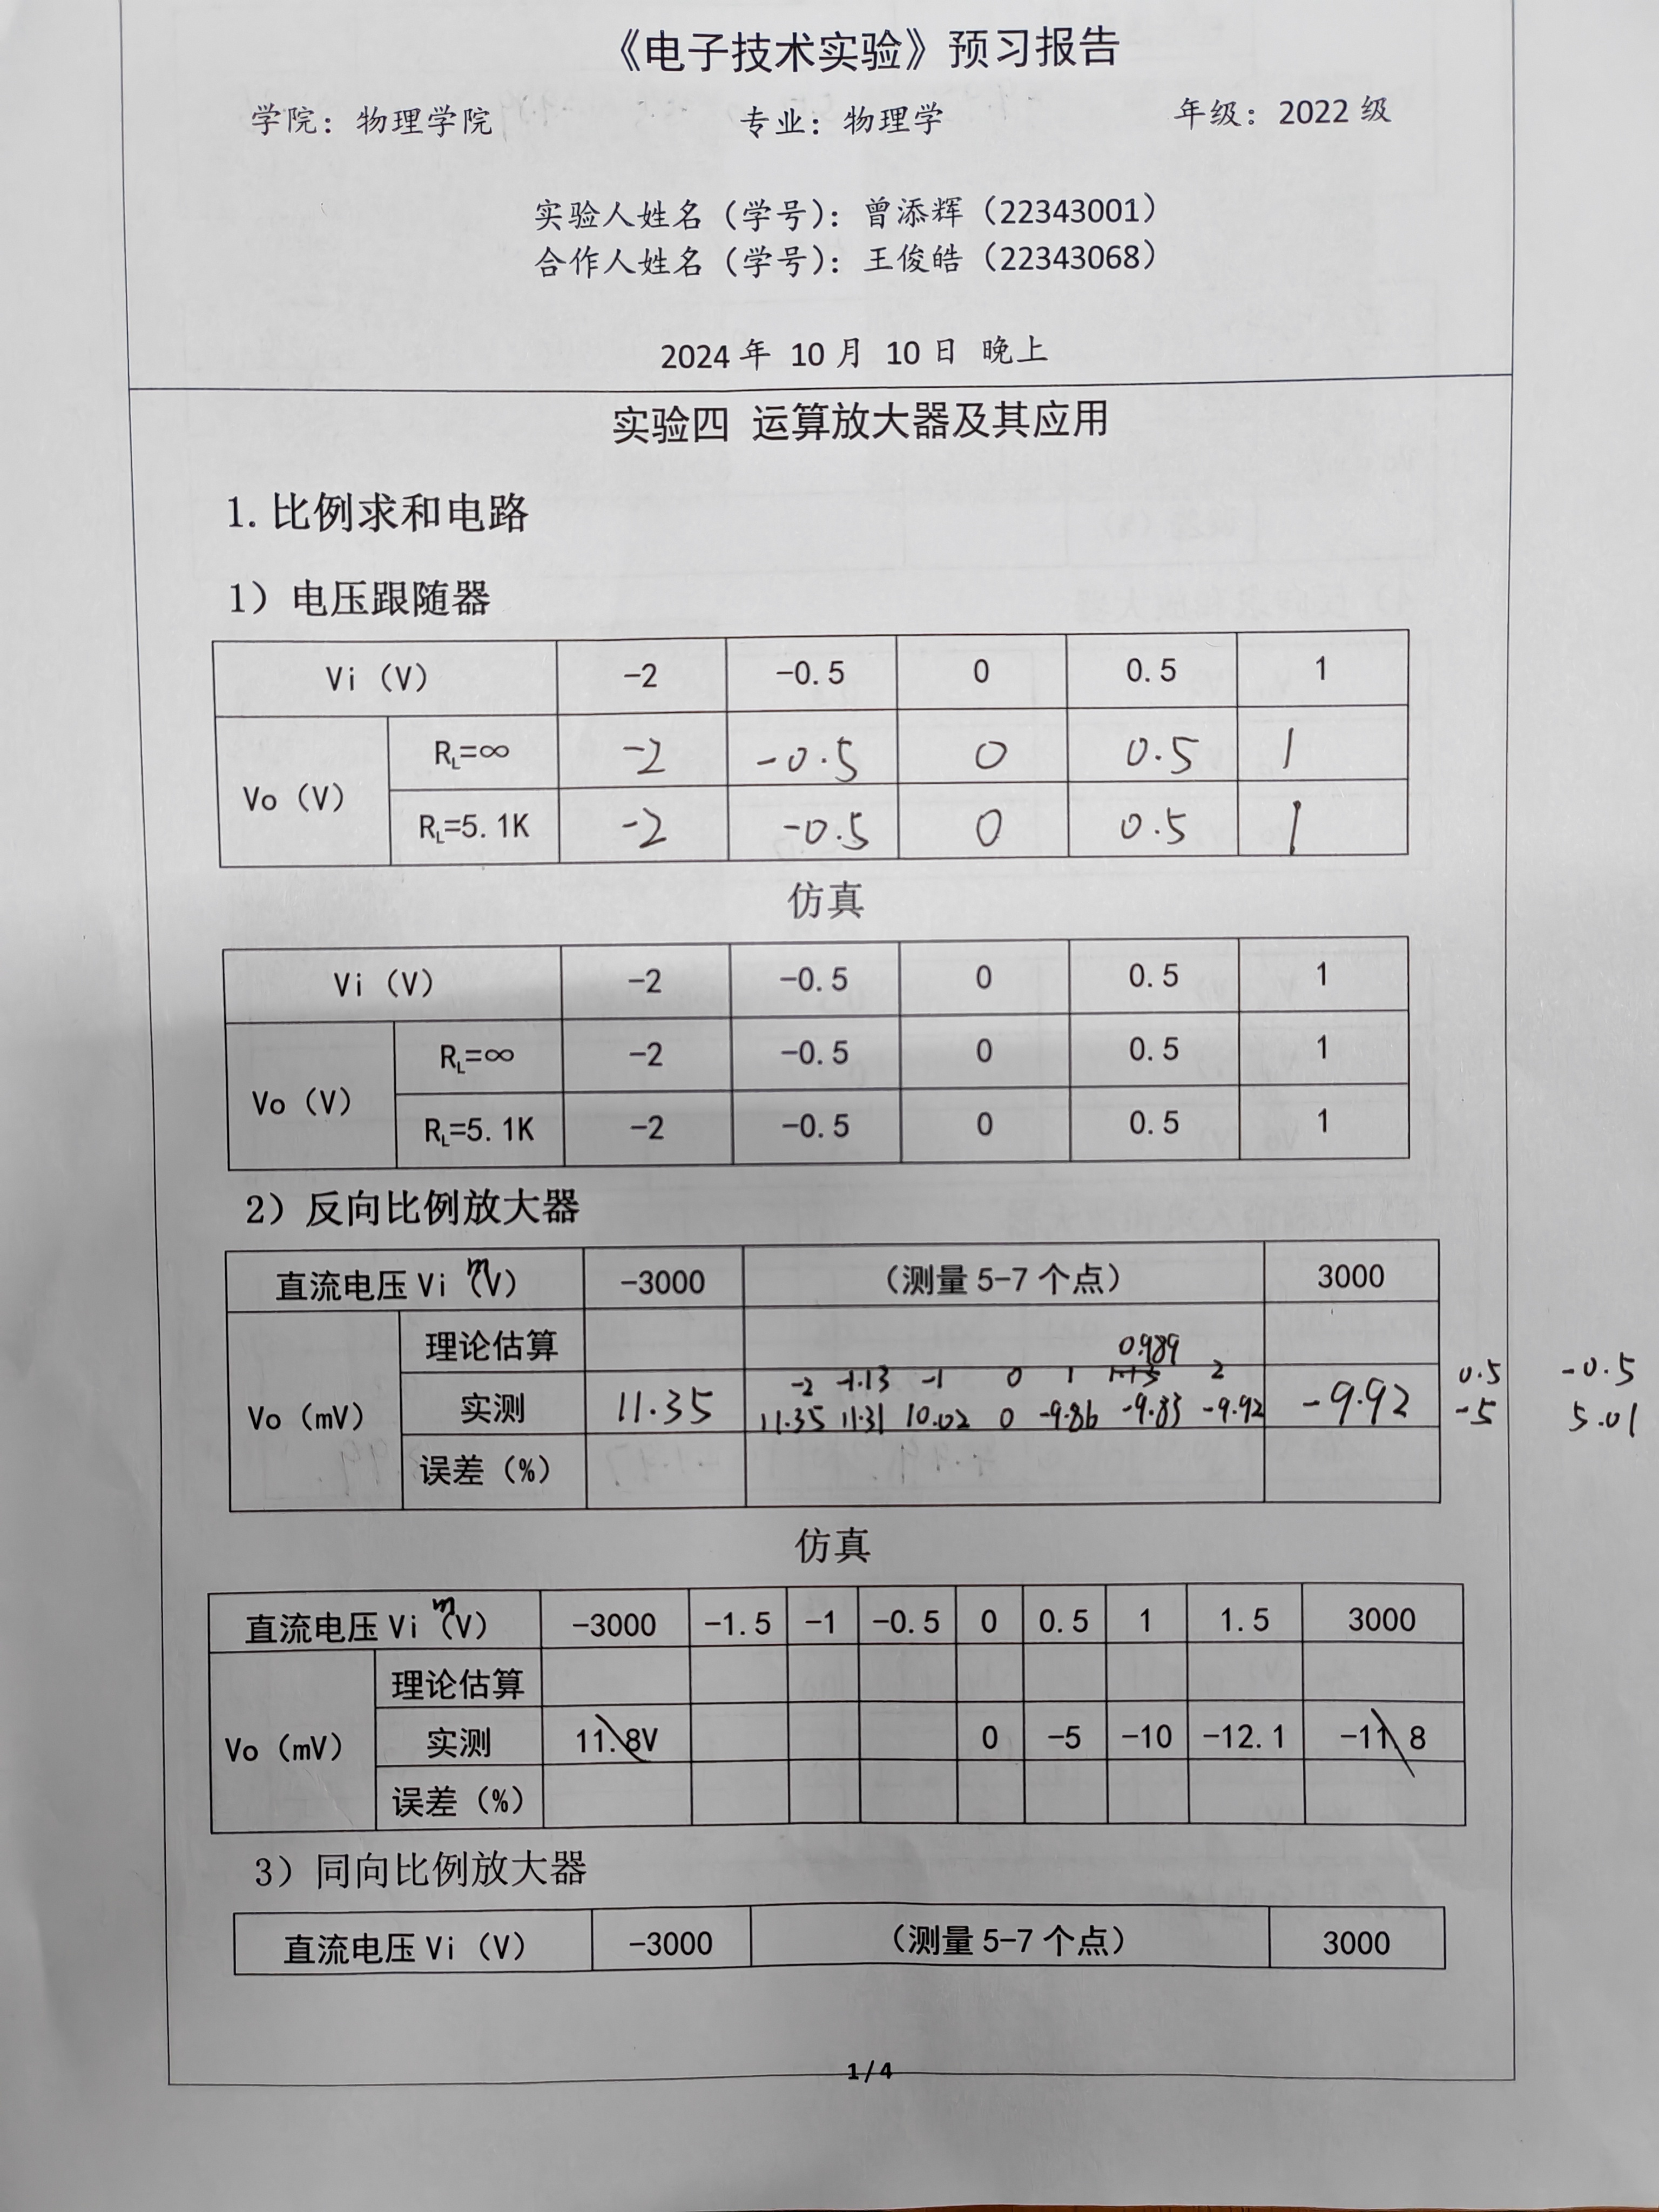 《电子技术实验》预习报告
学院：物理学院 专业：物理学 年级：2022 级
实验人姓名（学号）：曾添辉（22343001）
合作人姓名（学号）：王俊皓（22343068）
2024 年 10 月 10 日 晚上
实验四 运算放大器及其应用
1. 比例求和电路
1）电压跟随器
Vi（V） -2 -0.5 0 0.5 1
Vo（V） RL=∞ -2 -0.5 0 0.5 1
RL=5.1K -2 -0.5 0 0.5 1
仿真
Vi（V） -2 -0.5 0 0.5 1
Vo（V） RL=∞ -2 -0.5 0 0.5 1
RL=5.1K -2 -0.5 0 0.5 1
2）反向比例放大器
直流电压 Vi（mV） -3000 （测量 5-7 个点） 3000
理论估算
0.989
-2 -1.13 -1 0 1 1.13 2 0.5 -0.5
Vo（mV） 实测 11.35 11.35 11.31 10.02 0 -9.86 -9.83 -9.92 -9.92 -5 5.01
误差（%）
仿真
直流电压 Vi（mV） -3000 -1.5 -1 -0.5 0 0.5 1 1.5 3000
理论估算
Vo（mV） 实测 11.8V 0 -5 -10 -12.1 -11.8
误差（%）
3）同向比例放大器
直流电压 Vi（V） -3000 （测量 5-7 个点） 3000
1 / 4